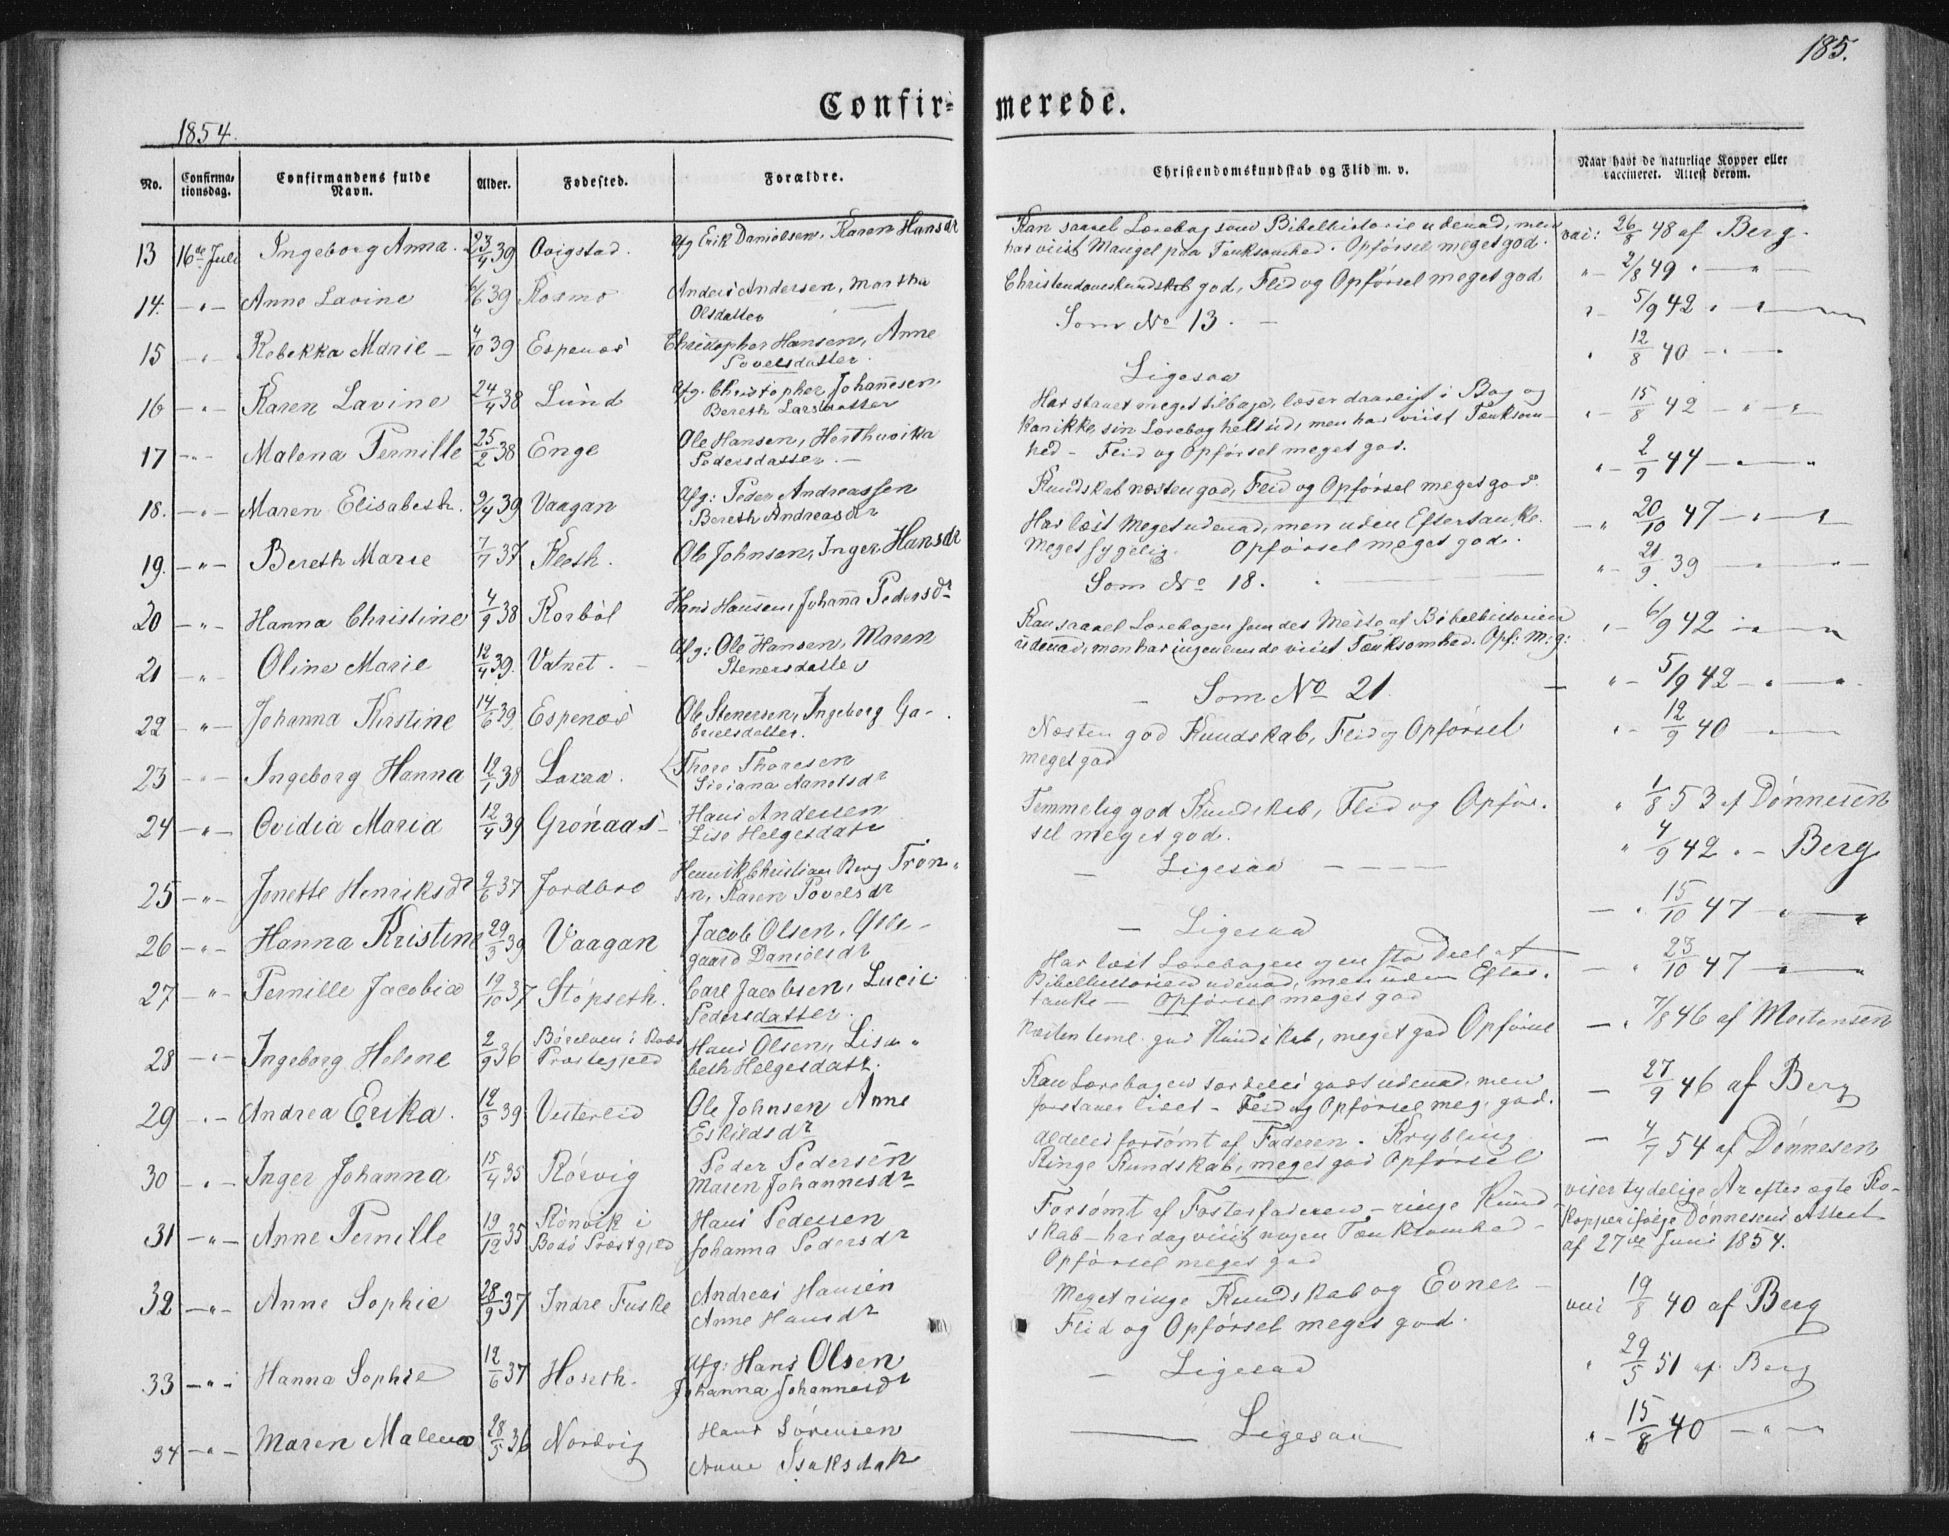 185.
Confir- merede.
1854.
No. Confirma-tionsdag. Confirmandens fulde Navn. Alder. Fødested. Forældre. Christendomskundskab og Flid m. v. Naar havt de naturlige Kopper eller vaccineret. Attest derom.
13 16de Juli Ingeborg Anna. 23/4 39 Qvigstad. Afg Erik Danielsen, Karen Hansdr
Kan saavel Lærebog som Bibelhistorie udenad, men
har viist Mangel paa Tænksomhed. Opførsel meget god. vac: 26/8 48 af Berg.
14. -"- Anne Lavine 6/6 39 Rosmo Anders Andersen, Martha
Olsdatter
Christendomskundskab god, Flid og Opførsel meget god "- 2/8 49 " - " -
15 -"- Rebekka Marie - 4/10 39 Espenes Christopher Hansen, Anne
Povelsdatter.
Som No 13. - "- 5/9 42 " - "
16 -"- Karen Lavine 24/4 38 Lund Afg. Christopher Johannesen
Bereth Larsdatter
Ligesaa " 12/8 40 - " -
17 -"- Malena Pernille 25/2 38 Enge Ole Hansen,
Pedersdatter. -
Har staaet meget tilbage, læser daarligt i Bog og
kan ikke sin Lærebog helt ud, men har viist Tænksom-
hed - Flid og Opførsel meget god. "- 15/8 42 - " - "
18. -"- Maren Elisabeth. 2/4 39 Vaagan Afg: Peder Andreassen
Bereth Andreasdr
Kundskab næsten god, Flid og Opførsel meget god "- 2/9 44 - " - "
19. -"- Bereth Marie 7/7 37 Kleth. Ole Johnsen, Inger Hansdr
Har læst meget udenad, men uden Eftertanke.
Meget sygelig. Opførsel meget god. - " 20/10 47 - " -
20 -"- Hanna Christine 4/9 38 Korbøl Hans Hansen, Johanna Pedersdr
Som No 18. "- 21/9 39 - " -
21 -"- Oline Marie 12/4 39. Vatnet. - Afg: Ole Hansen, Maren
Stenersdatter
Kan saavel Lærebogen som det Meste af Bibelhistorien
udenad, men har ingenlunde viist Tænksomhed. Opf: M: g: "- 6/9 42 " - "
22 -"- Johanna Kirstine 14/6 39 Espenes Ole Stenersen, Ingeborg Ga-
brielsdatter.
- Som No 21. - "- 5/9 42 - " -
23 -"- Ingeborg Hanna 12/1 38 Løvaa. Thore Thoresen
Siriana Arntsdr
Næsten god Kundskab, Flid og Opførsel
meget god "- 12/9 40 -
24 -"- Ovidia Maria 12/4 39 Grønaas - Hans Andersen
Lise Helgesdatr
Temmelig god Kundskab, Flid og Opfør-
sel meget god. " 1/8 53 af Dønnesen
25 -"- Jenette Henriksdr 2/6 37 Jordbro Henrik Christian Berg Tron-
sen, Karen Povelsdr
- Ligesaa - - - - " 4/9 42 " - Berg
26 -"- Hanna Kristine 29/3 39 Vaagan Jacob Olsen, Olle-
gaard Danielsdr
- Ligesaa - " 15/10 47 - " - "
27 -"- Pernille Jacobia 19/10 37 Støpseth. Carl Jacobsen, Lucie
Pedersdatter.
Har læst Lærebogen og en stor Deel af
Bibelhistorien udenad, men uden Efter-
tanke - Opførsel meget god - " 23/10 47 - "
28 -"- Ingeborg Helene 2/9 36 i
Præstegjeld Hans Olsen, Lisa-
beth Helgesdatr.
Næsten teml. god Kundskab, meget god Opførsel - " 7/8 46 af Mortensen
29 -"- Andrea Erika. 12/3 39 Vesterlid Ole Johnsen Anne
Eskildsdr
Kan Lærebogen særdeles godt udenad, men
forstaaer lidet - Flid og Opførsel meg. god. - 27/9 46 af Berg
30 -"- Inger Johanna 15/4 35 Røsvig Peder Pedersen
Maren Johannesdr
Aldeles forsømt af Faderen. Krybling
Ringe Kundskab, meget god Opførsel - 4/7 54 af Dønnesen
31 -"- Anne Pernille 19/12 35 Rønvik i
Bodø Præstgjeld Hans Pedersen
Johanna Pedersdr
Forsømt af Fosterfaderen - ringe Kund-
skab - har dog viist nogen Tænksomhed -
Opførsel meget god
viser tydelige Ar efter ægte Ko-
kopper ifølge Dønnesens Attest
af 27de Juni 1854.
32 -"- Anne Sophie 28/9 37 Indre Fuske Andreas Hansen
Anne Hansdr
Meget ringe Kundskab og Evner -
Flid og Opførsel meget god. vac: 19/8 40 af Berg
33 -"- Hanna Sophie 12/6 37 Hoseth. Afg: Hans Olsen
Johanna Johannesdr
- Ligesaa " 29/5 51 af Berg
34 -"- Maren Malena 28/5 36 Nordvig Hans Sørensen
Anne Isaksdatr
- Ligesaa "- 15/8 40 - " -